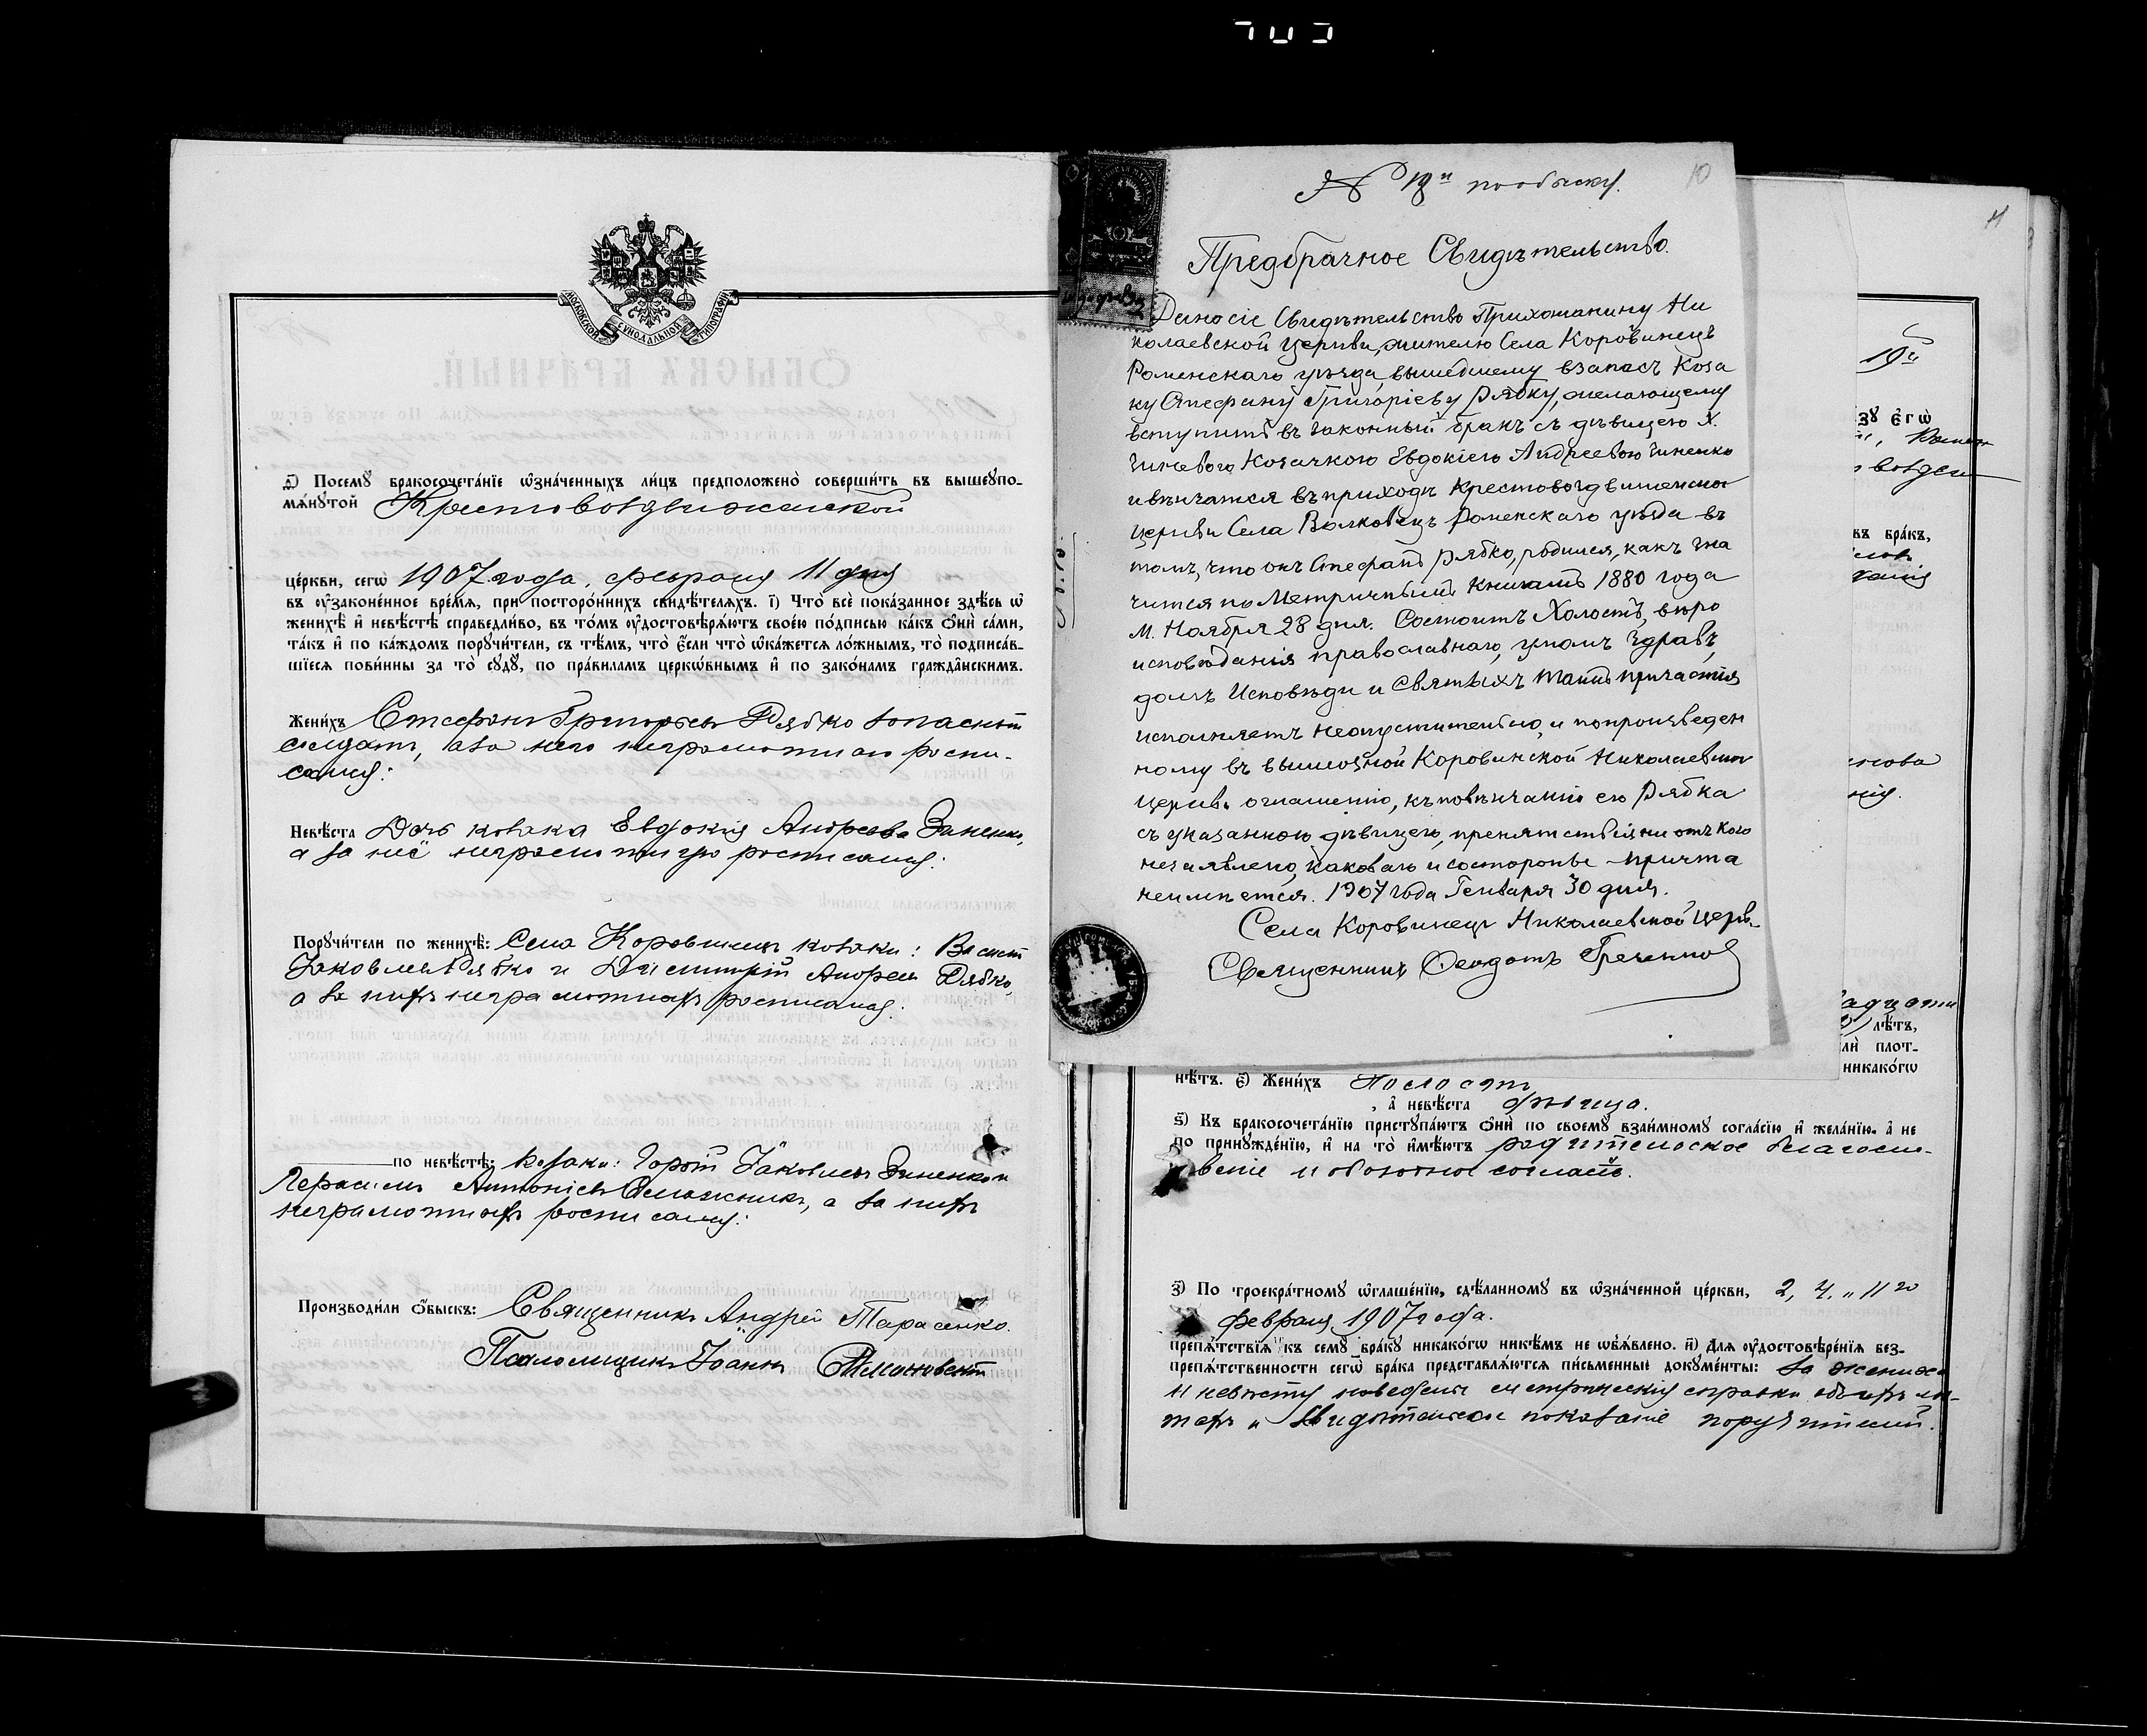 МОСКОВСКОЙ СѴНОДАЛЬНОЙ ТИПОГРАФІИ
Посемꙋ бракосочета́нїе ѡзна́ченныхъ ли́цъ предположено̀ соверши́ть въ вышеꙋпо-
мѧ́нꙋтой Крестовоздвиженской
це́ркви, сегѡ̀ 1907 года, февраля 11 дня
въ ᲂу҆законе́нное вре́мѧ, при посторо́ннихъ свидѣ́телѧхъ. і҃) Что̀ всѐ пока́занное здѣ́сь ѡ҆
женихѣ̀ и҆ невѣ́стѣ справедли́во, въ то́мъ ᲂу҆достовѣрѧ́ютъ свое́ю по́дписью ка́къ ѻ҆нѝ са́ми,
та́къ и҆ по ка́ждомъ порꙋчи́тели, съ тѣ́мъ, что̀ є҆́сли что̀ ѡ҆ка́жется ло́жнымъ, то̀ подписа́в-
шїеся пови́нны за то̀ сꙋдꙋ̀, по пра́виламъ церкѡ́внымъ и҆ по зако́намъ гражда́нскимъ.
Жени́хъ Стефанъ Григорьевъ Рябко запасный
солдатъ, а за него неграмотнаго роспи-
сался:
Невѣ́ста Дочь козака Евдокія Андреева Зиненко,
а за неё неграмотную росписался:
Порꙋчи́тели по женихѣ̀: Села Коровинецъ козаки:
Яковлевъ Рябко и Димитрій Андреевъ Рябко,
а за нихъ неграмотныхъ росписался:
по невѣ́стѣ: козаки: Яковлевъ Зиненко и
Герасимъ Антоніевъ а за нихъ
неграмотныхъ росписался:
Производи́ли ѻ҆́быскъ: Священникъ Андрей Тарасенко.
Псаломщикъ Іоаннъ
№ 19й по обыску.
10
Предбрачное Свидѣтельство.
Дано сіе Свидѣтельство Прихожанину Ни
колаевской Церкви, жителю Села Коровинецъ
Роменскаго уѣзда, вышедшему въ запасъ Коза
ку Стефану Григоріеву Рябку, желающему
вступить въ законный бракъ съ дѣвицею Х.
Зинева Козачкою Евдокіею Андреевою Зиненко
и вѣнчатся въ приходѣ Крестовоздвиженской
Церкви Села Волковецъ Роменскаго уѣзда въ
томъ, что онъ Стефанъ Рябко, родился, какъ зна
чится по Метричнымъ Книгамъ 1880 года
М. Ноября 28 дня. Состоитъ Холостъ, вѣро
исповѣданія православнаго, умомъ здравъ,
долгъ Исповѣди и Святыхъ Таинъ причастія
исполняетъ неопустительно, и по произведен
ному въ Коровинской Николаевской
Церкви оглашенію, къ повѣнчанію его Рябка
съ указанною дѣвицею, препятствія ни отъ кого
не заявлено, каковаго и со стороны причта
не имѣется. 1907 года Генваря 30 дня.
Села Коровинецъ Николаевской Церкви
Священникъ Феодотъ
11
19й
зꙋ̀ є҆гѡ̀
въ бра́къ,
лѣ́тъ,
лѝ плот-
никако́гѡ
нѣ́тъ. є҃) Жени́хъ холостъ
, а҆ невѣ́ста дѣвица.
ѕ҃) Къ бракосочета́нїю пристꙋпа́ютъ ѻ҆нѝ по своемꙋ̀ взаи́мномꙋ согла́сїю и҆ жела́нїю, а҆ не
по принꙋжде́нїю, и҆ на то̀ и҆мѣ́ютъ родительское благосло-
веніе и обоюдное согласіе.
з҃) По троекра́тномꙋ ѡ҆глаше́нїю, сдѣ́ланномꙋ въ ѡ҆зна́ченной це́ркви, 2, 4, и 11го
февраля 1907 года.
препѧ́тствїѧ къ семꙋ̀ бра́кꙋ никако́гѡ никѣ́мъ не ѡ҆б̾ѧ́влено. и҃) Для ᲂу҆достовѣре́нїѧ без-
препѧ́тственности сегѡ̀ бра́ка представлѧ́ются пи́сьменные докꙋме́нты: за жениха
и невѣсту наведены метрическія справки о ихъ лѣ-
тахъ и свидѣтельское показаніе поручителей.